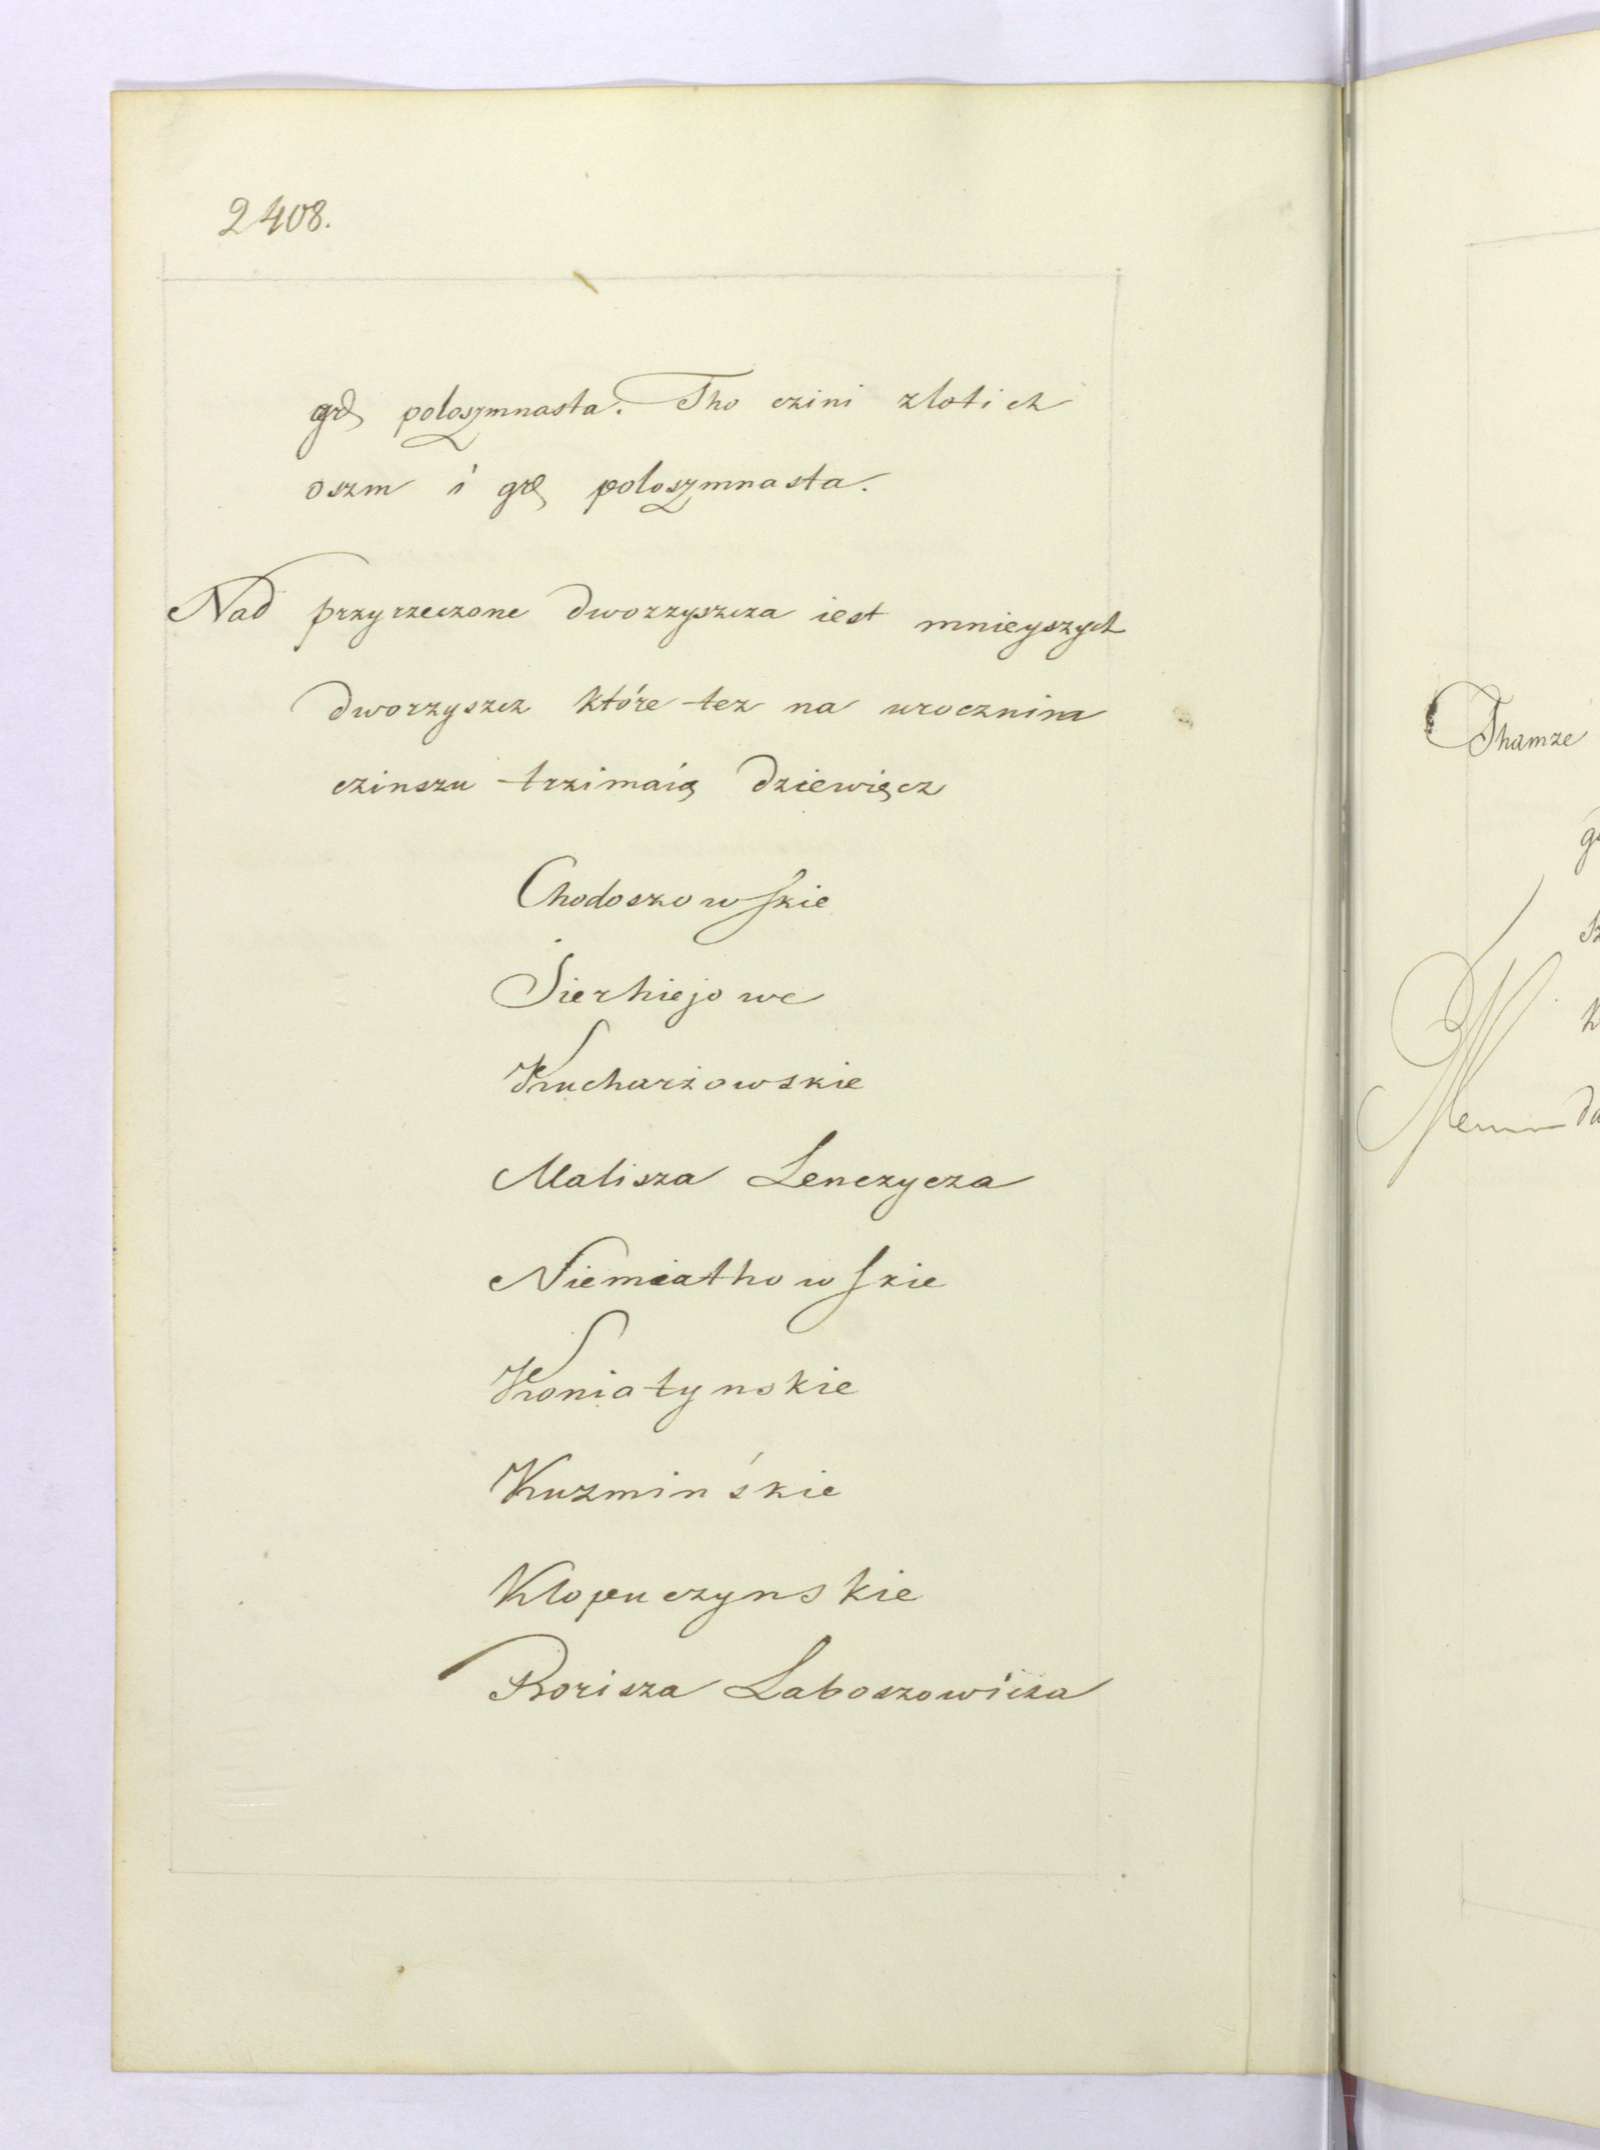 2408.
grȹ poloszmnasta. Tho czini zlotich
oszm i grȹ poloszmnasta.
Nad przyrzeczone dworzyszcza iest mnieyszych
dworzyszcz które tez na urocznim
czinszu trzimaią dziewięcz
Chodoszowskie
Sierhiejowe
Kucharzowskie
Malisza Lenczycza
Niemiathowskie
Koniatynskie
Kuzmińskie
Klopuczynskie
Borisza Laboszowicza
Thamze